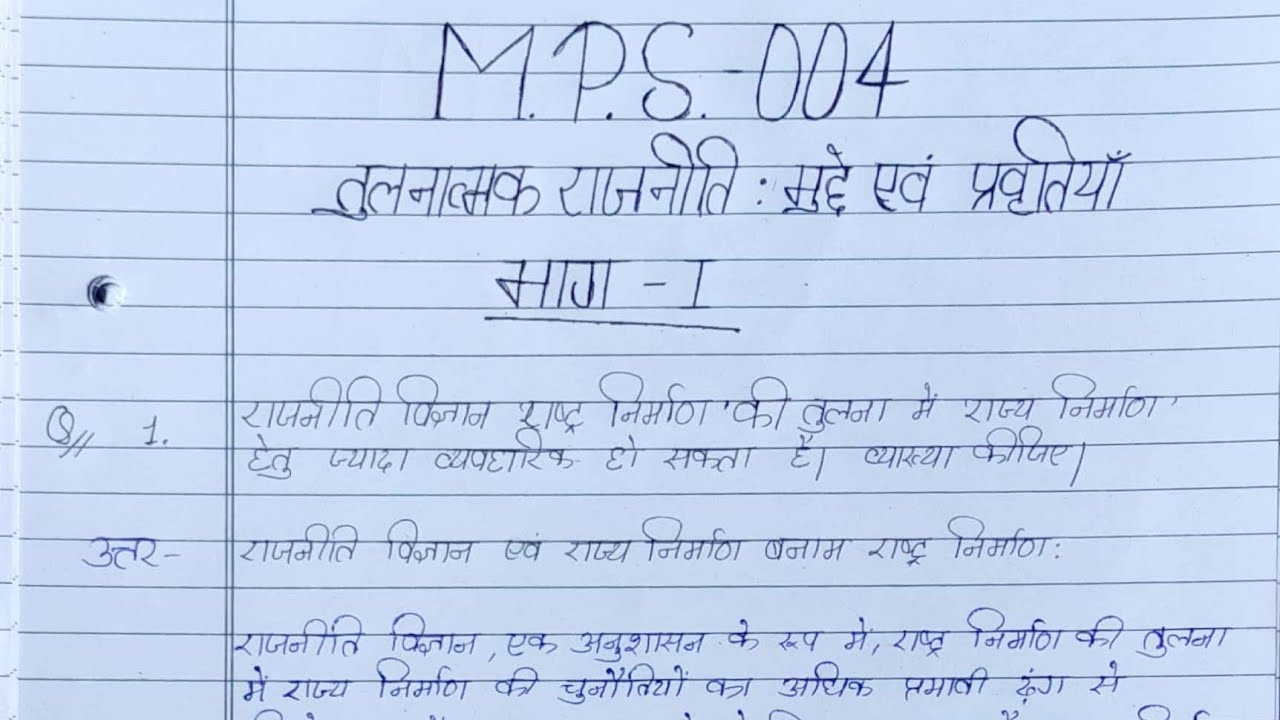 M.P.S.-004
तुलनात्मक राजनीति : मुद्दे एवं प्रवृतियाँ
भाग - I
Q// 1. राजनीति विज्ञान 'राष्ट्र निर्माण' की तुलना में 'राज्य निर्माण'
हेतु ज्यादा व्यवहारिक हो सकता है। व्याख्या कीजिए।
उत्तर- राजनीति विज्ञान एवं राज्य निर्माण बनाम राष्ट्र निर्माण :
राजनीति विज्ञान, एक अनुशासन के रूप में, राष्ट्र निर्माण की तुलना
में राज्य निर्माण की चुनौतियों का अधिक प्रभावी ढ़ंग से